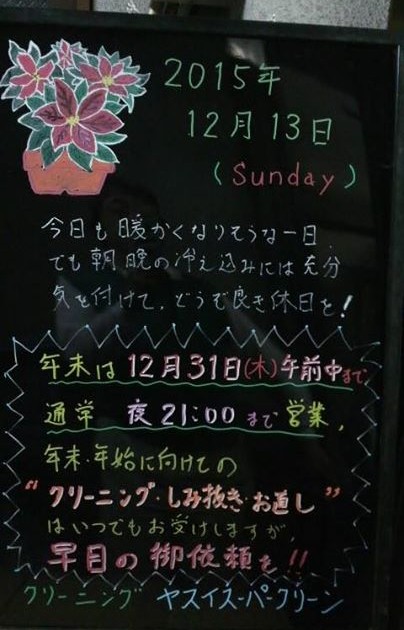 2015年
12月13日
(Sunday)
今日も暖かくなりそうな一日.
でも朝晩の冷え込みには充分
気を付けて、どうぞ良き休日を!
年末は12月31日(木)午前中まで
通常 夜21:00まで営業,
年末・年始に向けての
“クリーニング・しみ抜き・お直し”
はいつでもお受けしますが,
早目の御依頼を!!
クリーニング ヤスイスーパークリーン